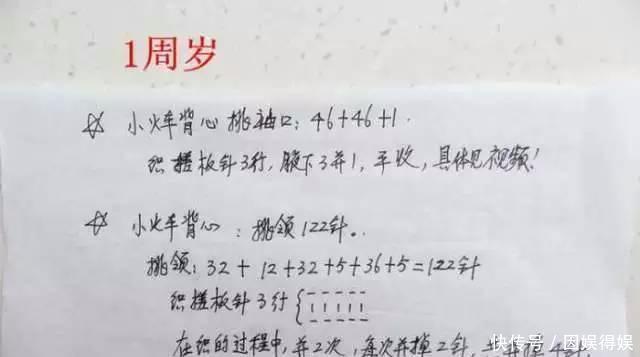 1周岁
☆ 小火车背心挑袖口：46+46+1.
织搓板针3行，腋下3并1，平收，具体见视频！
☆ 小火车背心：挑领122针。
挑领：32+12+32+5+36+5=122针
织搓板针3行
在织的过程中，并2次，每次并掉2针，
快传号／因娱得娱